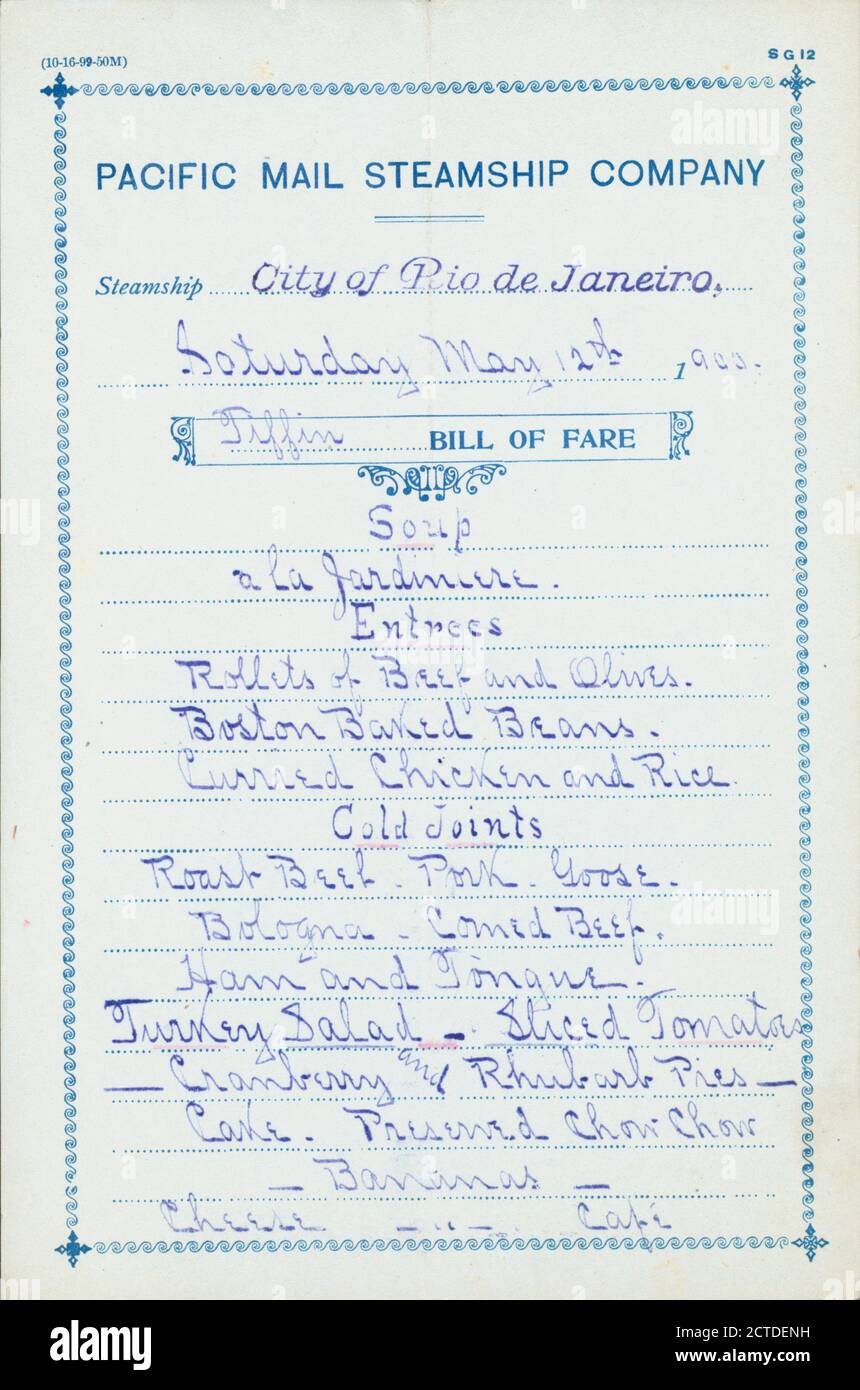 (10-16-99-50M)
SG12
PACIFIC MAIL STEAMSHIP COMPANY
Steamship City of Rio de Janeiro.
Saturday May 12th 1900.
Tiffin BILL OF FARE
Soup
a la Jardiniere.
Entrees
Rollets of Beef and Olives.
Boston Baked Beans.
Curried Chicken and Rice.
Cold Joints
Roast Beef - Pork - Goose.
Bologna - Corned Beef.
Ham and Tongue.
Turkey Salad - Sliced Tomatoes
— Cranberry and Rhubarb Pies —
Cake. Preserved Chow Chow
— Bananas —
Cheese — " — Café
alamy
Image ID: 2CTDENH
www.alamy.com